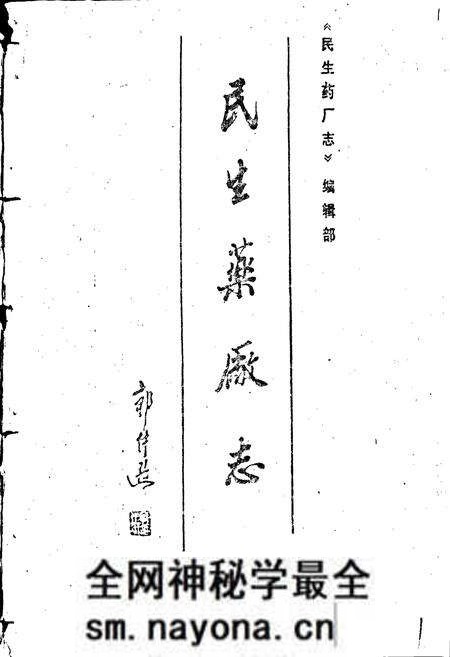 《民生药厂志》编辑部
民生藥廠志
全网神秘学最全
sm.nayona.cn